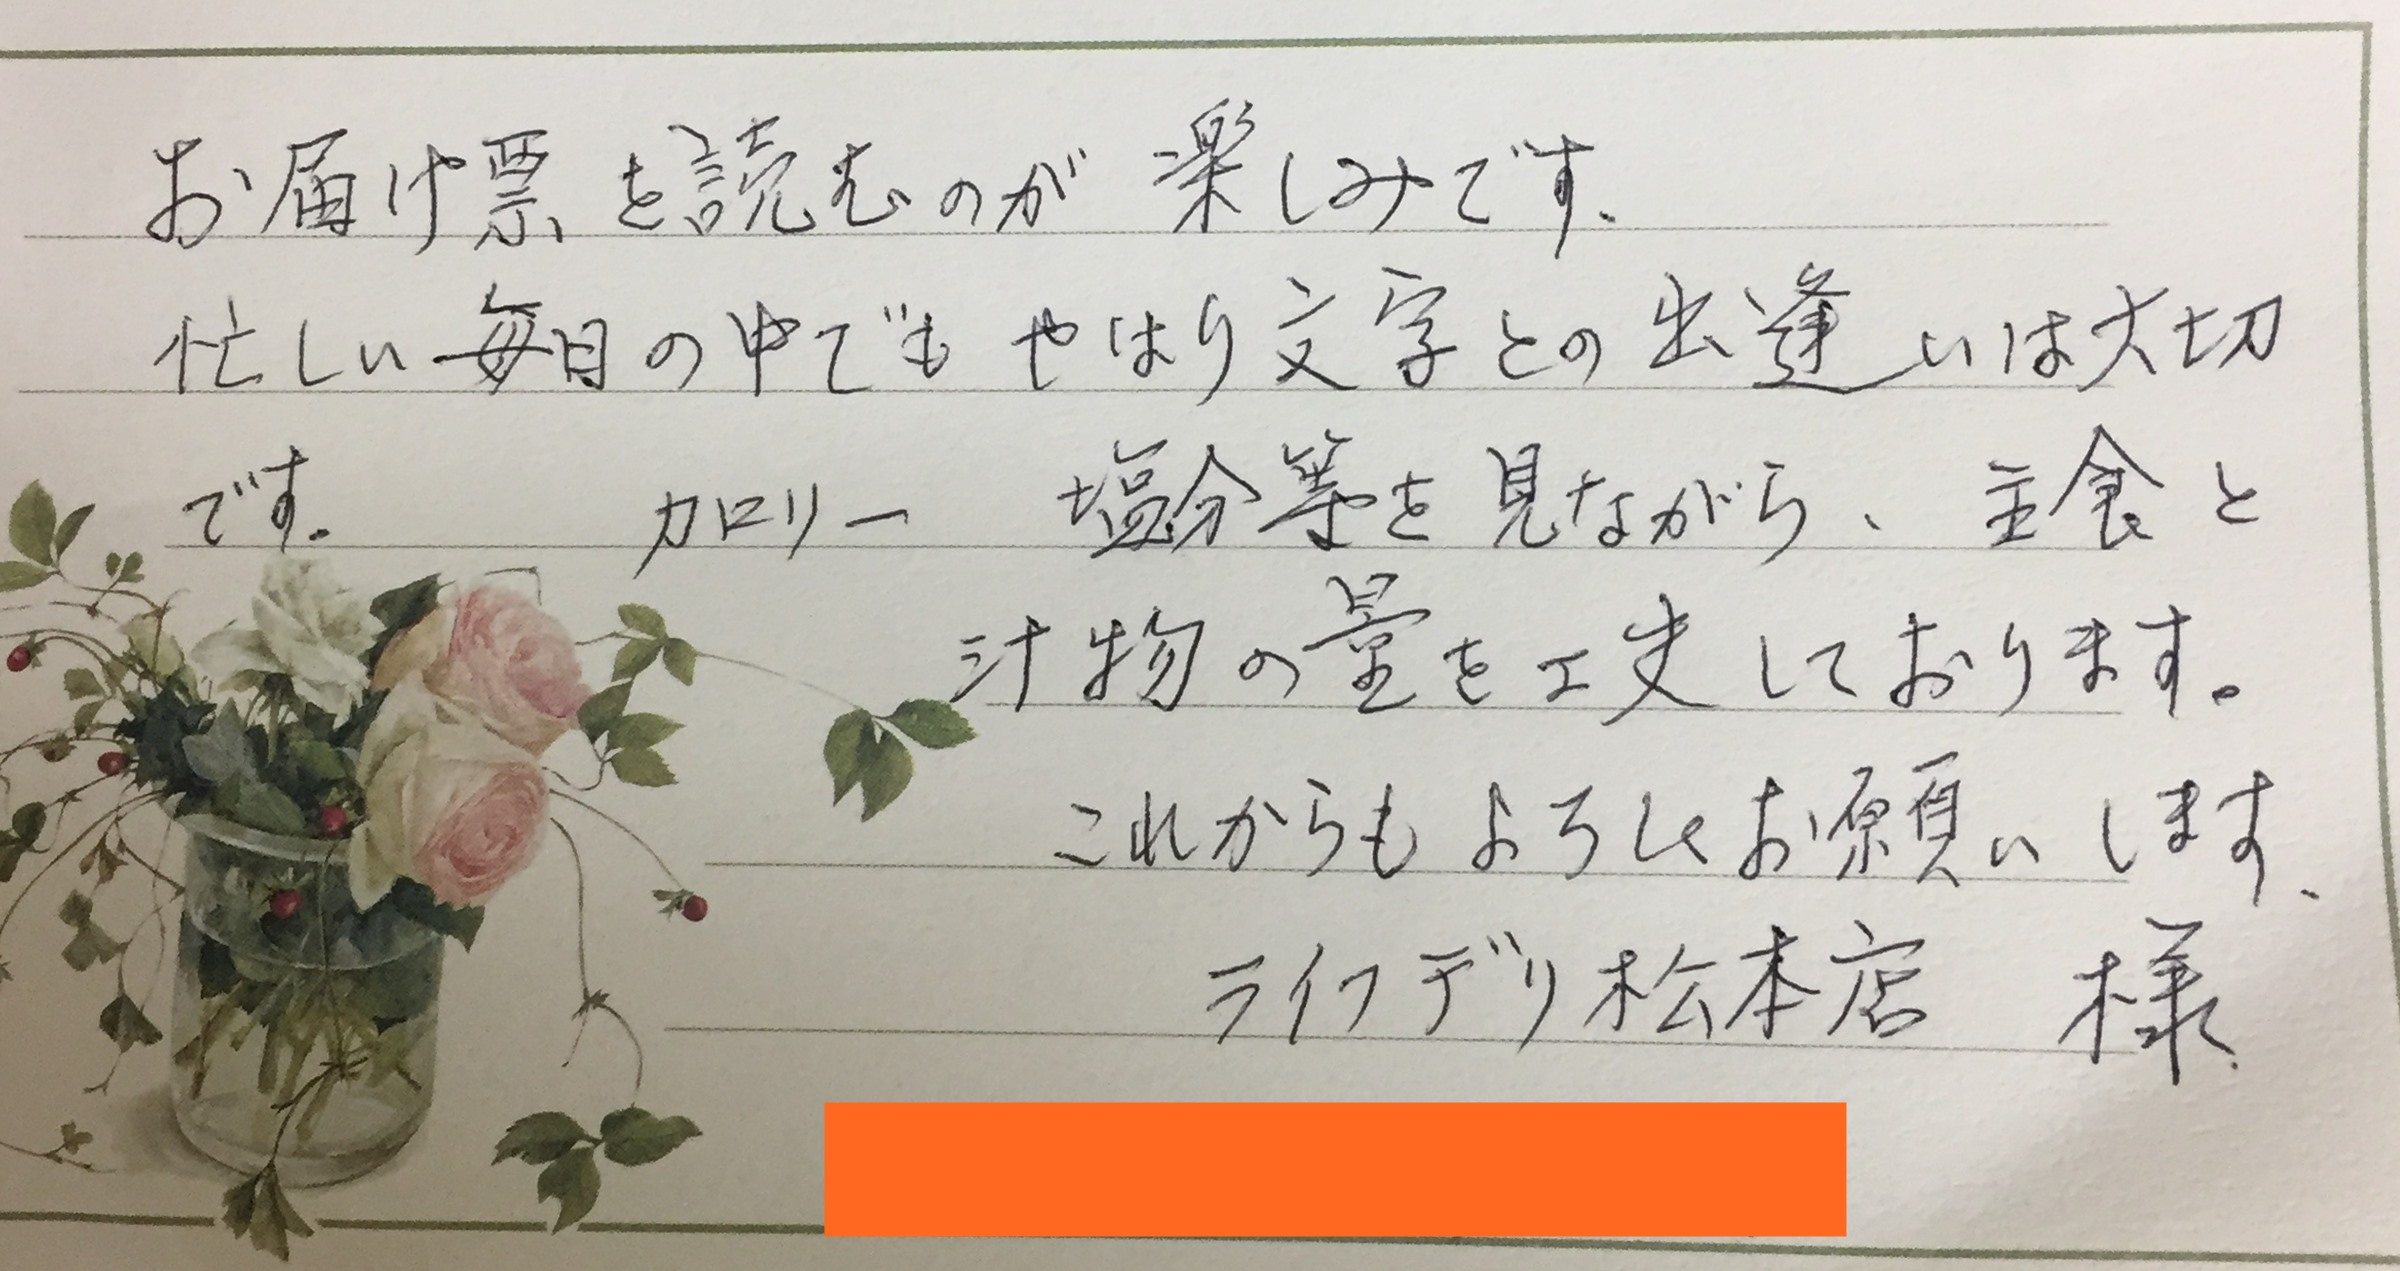 お届け票を読むのが楽しみです、
忙しい毎日の中でもやはり文字との出逢いは大切
です。 カロリー 塩分等を見ながら、主食と
汁物の量を工夫しております。
これからもよろしくお願いします、
ライフデリ松本店 様